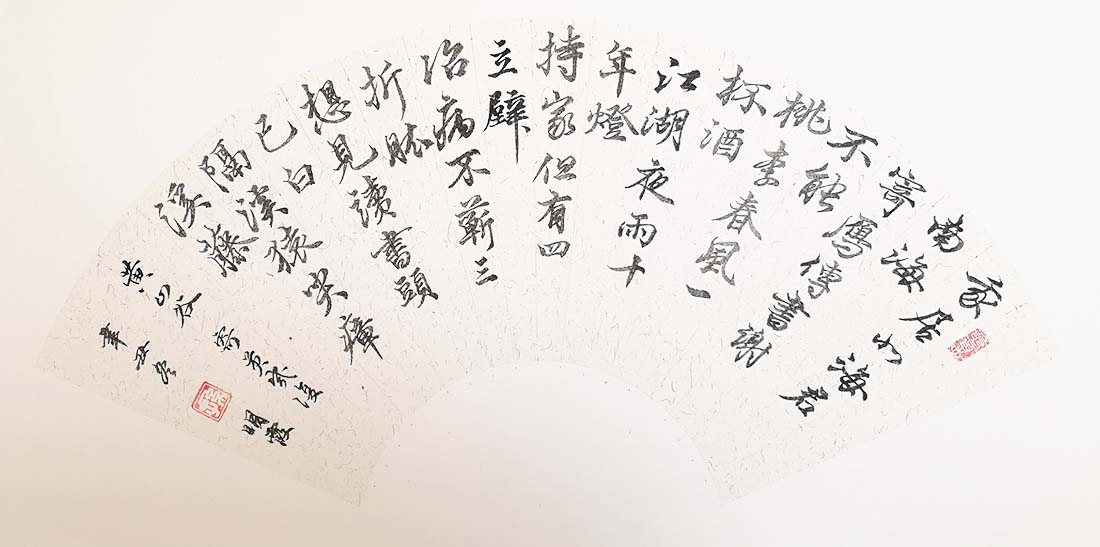 我居北海君
南海
寄雁傳書謝
不能
桃李春風一
杯酒
江湖夜雨十
年燈
持家但有四
立壁
治病不蘄三
折肱
想見讀書頭
已白
隔溪猿哭瘴
溪藤
黃山谷 寄黃幾復
辛丑冬 明霞